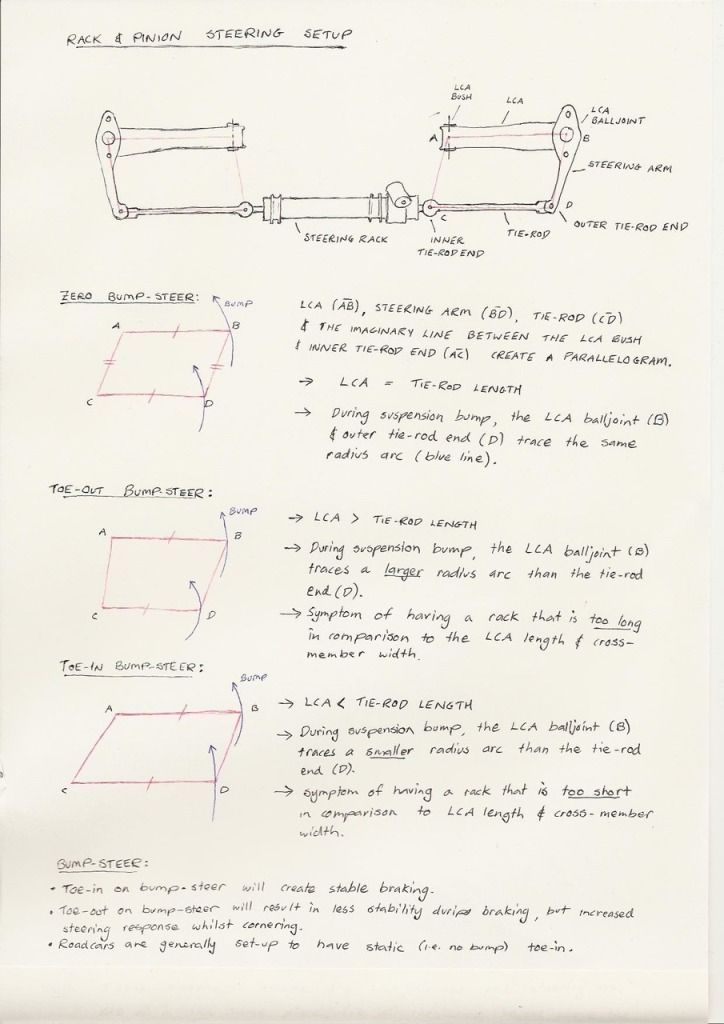 RACK & PINION STEERING SETUP
LCA
BUSH
LCA
LCA
BALLJOINT
A
B
STEERING ARM
D
C
OUTER TIE-ROD END
STEERING RACK
INNER
TIE-ROD END
TIE-ROD
ZERO BUMP-STEER:
BUMP
A
B
C
D
LCA (AB), STEERING ARM (BD), TIE-ROD (CD)
& THE IMAGINARY LINE BETWEEN THE LCA BUSH
& INNER TIE-ROD END (AC) CREATE A PARALLELOGRAM.
→ LCA = TIE-ROD LENGTH
→ During suspension bump, the LCA balljoint (B)
& outer tie-rod end (D) trace the same
radius arc (blue line).
TOE-OUT BUMP-STEER:
BUMP
A
B
C
D
→ LCA > TIE-ROD LENGTH
→ During suspension bump, the LCA balljoint (B)
traces a larger radius arc than the tie-rod
end (D).
→ Symptom of having a rack that is too long
in comparison to the LCA length & cross-
member width.
TOE-IN BUMP-STEER:
BUMP
A
B
C
D
→ LCA < TIE-ROD LENGTH
→ During suspension bump, the LCA balljoint (B)
traces a smaller radius arc than the tie-rod
end (D).
→ Symptom of having a rack that is too short
in comparison to LCA length & cross-member
width.
BUMP-STEER:
• Toe-in on bump-steer will create stable braking.
• Toe-out on bump-steer will result in less stability during braking, but increased
steering response whilst cornering.
• Roadcars are generally set-up to have static (i.e. no bump) toe-in.